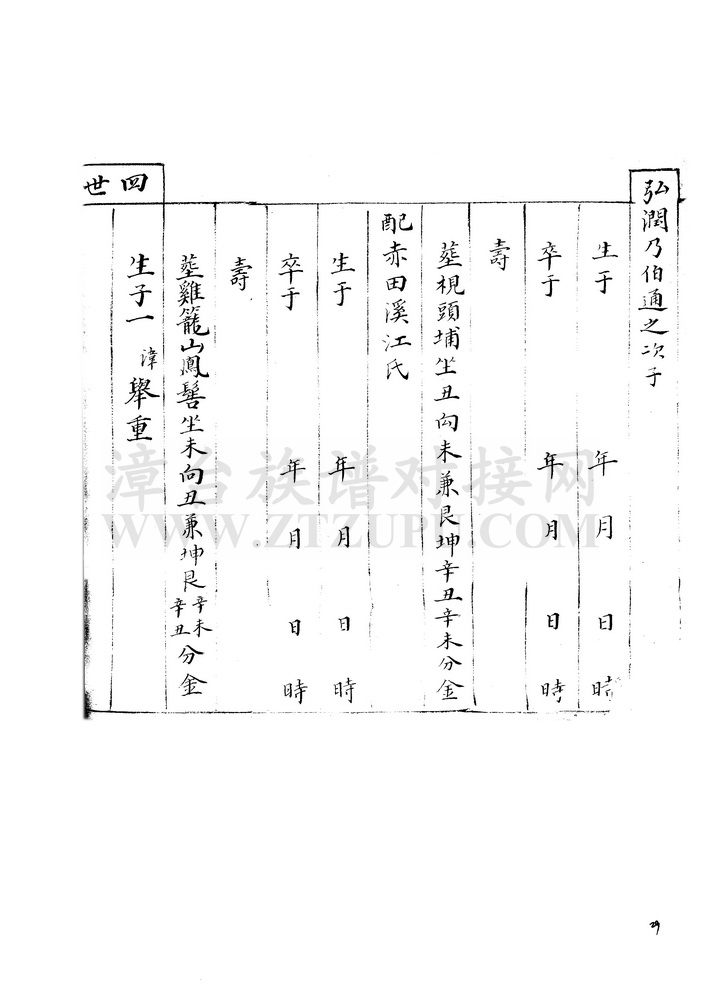 弘潤乃伯通之次子
生于 年 月 日 時
卒于 年 月 日 時
壽
塟視頭埔坐丑向未兼艮坤辛丑辛未分金
配赤田溪江氏
生于 年 月 日 時
卒于 年 月 日 時
壽
塟雞籠山鳳髻坐未向丑兼坤艮辛未辛丑分金
四世
生子一 諱舉重
漳台族谱对接网
WWW.ZTZUPU.COM
29